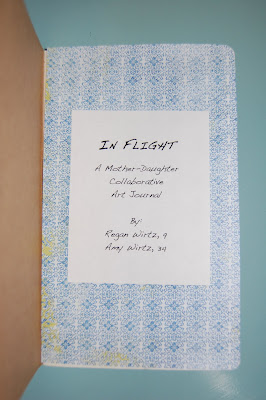 In Flight
A Mother-Daughter
Collaborative
Art Journal
By:
Regan Wirtz, 9
Amy Wirtz, 39